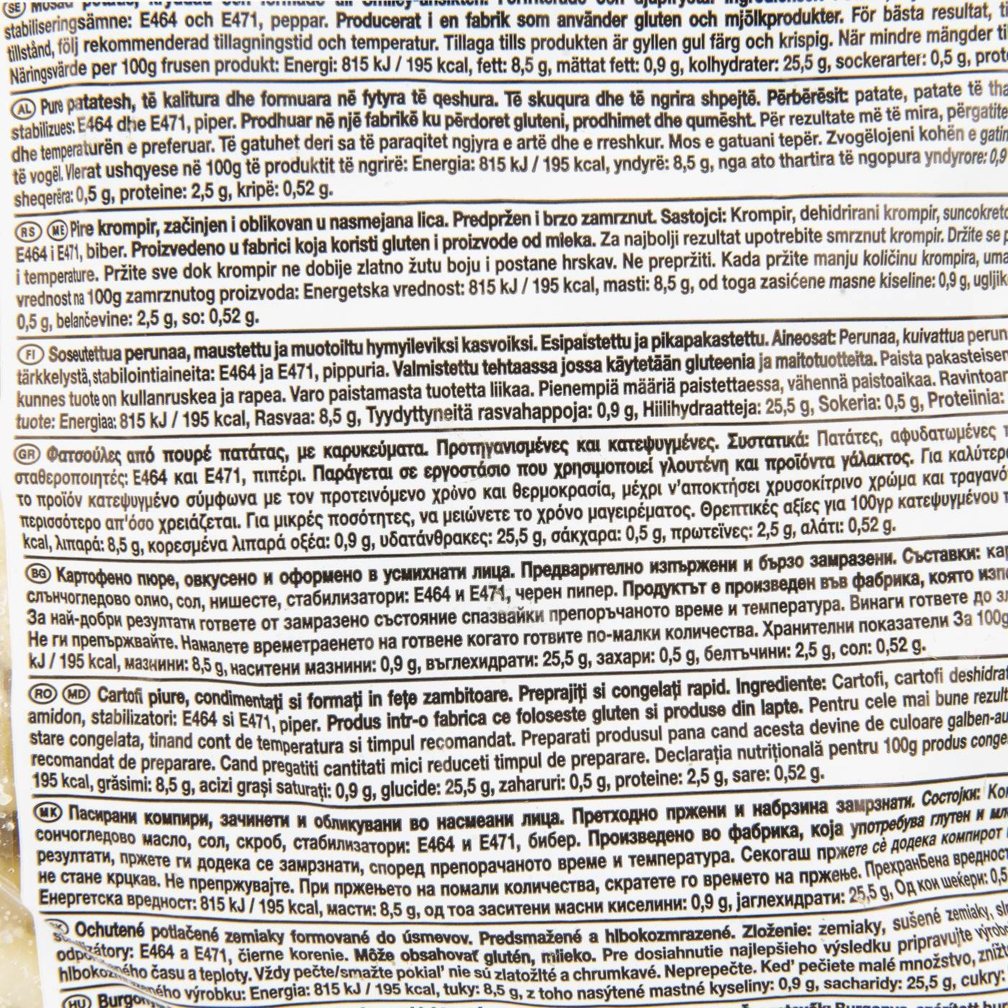 SE Mosad
stabiliseringsämne: E464 och E471, peppar. Producerat i en fabrik som använder gluten och mjölkprodukter. För bästa resultat,
tillstånd, följ rekommenderad tillagningstid och temperatur. Tillaga tills produkten är gyllen gul färg och krispig. När mindre mängder
Näringsvärde per 100g frusen produkt: Energi: 815 kJ / 195 kcal, fett: 8,5 g, mättat fett: 0,9 g, kolhydrater: 25,5 g, sockerarter: 0,5 g,
AL Pure patatesh, të kalitura dhe formuara në fytyra të qeshura. Të skuqura dhe të ngrira shpejtë. Përbërësit: patate, patate të
stabilizues: E464 dhe E471, piper. Prodhuar në një fabrikë ku përdoret gluteni, prodhimet dhe qumësht. Për rezultate më të mira,
dhe temperaturën e preferuar. Të gatuhet deri sa të paraqitet ngjyra e artë dhe e rreshkur. Mos e gatuani tepër. Zvogëlojeni kohën e
të vogël. Vlerat ushqyese në 100g të produktit të ngrirë: Energia: 815 kJ / 195 kcal, yndyrë: 8,5 g, nga ato thartira të ngopura yndyrore: 0,9
sheqerëra: 0,5 g, proteine: 2,5 g, kripë: 0,52 g.
RS ME Pire krompir, začinjen i oblikovan u nasmejana lica. Predpržen i brzo zamrznut. Sastojci: Krompir, dehidrirani krompir,
E464 i E471, biber. Proizvedeno u fabrici koja koristi gluten i proizvode od mleka. Za najbolji rezultat upotrebite smrznut krompir. Držite se
i temperature. Pržite sve dok krompir ne dobije zlatno žutu boju i postane hrskav. Ne prepržiti. Kada pržite manju količinu krompira,
vrednost na 100g zamrznutog proizvoda: Energetska vrednost: 815 kJ / 195 kcal, masti: 8,5 g, od toga zasićene masne kiseline: 0,9 g,
0,5 g, belančevine: 2,5 g, so: 0,52 g.
FI Soseutettua perunaa, maustettu ja muotoiltu hymyileviksi kasvoiksi. Esipaistettu ja pikapakastettu. Aineosat: Perunaa, kuivattua
tärkkelystä, stabilointiaineita: E464 ja E471, pippuria. Valmistettu tehtaassa jossa käytetään gluteenia ja maitotuotteita. Paista
kunnes tuote on kullanruskea ja rapea. Varo paistamasta tuotetta liikaa. Pienempiä määriä paistettaessa, vähennä paistoaikaa.
tuote: Energiaa: 815 kJ / 195 kcal, Rasvaa: 8,5 g, Tyydyttyneitä rasvahappoja: 0,9 g, Hiilihydraatteja: 25,5 g, Sokeria: 0,5 g, Proteiinia:
GR Φατσούλες από πουρέ πατάτας, με καρυκεύματα. Προτηγανισμένες και κατεψυγμένες. Συστατικά: Πατάτες, αφυδατωμένες
σταθεροποιητές: Ε464 και Ε471, πιπέρι. Παράγεται σε εργοστάσιο που χρησιμοποιεί γλουτένη και προϊόντα γάλακτος. Για
το προϊόν κατεψυγμένο σύμφωνα με τον προτεινόμενο χρόνο και θερμοκρασία, μέχρι ν'αποκτήσει χρυσοκίτρινο χρώμα και
περισσότερο απ'όσο χρειάζεται. Για μικρές ποσότητες, να μειώνετε το χρόνο μαγειρέματος. Θρεπτικές αξίες για 100γρ κατεψυγμένου
kcal, λιπαρά: 8,5 g, κορεσμένα λιπαρά οξέα: 0,9 g, υδατάνθρακες: 25,5 g, σάκχαρα: 0,5 g, πρωτεϊνες: 2,5 g, αλάτι: 0,52 g.
BG Картофено пюре, овкусено и оформено в усмихнати лица. Предварително изпържени и бързо замразени. Съставки:
слънчогледово олио, сол, нишесте, стабилизатори: Е464 и Е471, черен пипер. Продуктът е произведен във фабрика, която
За най-добри резултати гответе от замразено състояние спазвайки препоръчаното време и температура. Винаги гответе до
Не ги препържвайте. Намалете времетраенето на готвене когато готвите по-малки количества. Хранителни показатели За 100g
kJ / 195 kcal, мазнини: 8,5 g, наситени мазнини: 0,9 g, въглехидрати: 25,5 g, захари: 0,5 g, белтъчини: 2,5 g, сол: 0,52 g.
RO MD Cartofi piure, condimentați si formați in fețe zambitoare. Preprajiți si congelați rapid. Ingrediente: Cartofi, cartofi
amidon, stabilizatori: E464 si E471, piper. Produs intr-o fabrica ce foloseste gluten si produse din lapte. Pentru cele mai bune
stare congelata, tinand cont de temperatura si timpul recomandat. Preparati produsul pana cand acesta devine de culoare
recomandat de preparare. Cand pregatiti cantitati mici reduceti timpul de preparare. Declarația nutrițională pentru 100g produs
195 kcal, grăsimi: 8,5 g, acizi grași saturați: 0,9 g, glucide: 25,5 g, zaharuri: 0,5 g, proteine: 2,5 g, sare: 0,52 g.
MK Пасирани компири, зачинети и обликувани во насмеани лица. Претходно пржени и набрзина замрзнати. Состојки:
сончогледово масло, сол, скроб, стабилизатори: Е464 и Е471, бибер. Произведено во фабрика, која употребува глутен и
резултати, пржете ги додека се замрзнати, според препорачаното време и температура. Секогаш пржете сѐ додека компирот
не стане крцкав. Не препржувајте. При пржењето на помали количества, скратете го времето на пржење. Прехранбена
Енергетска вредност: 815 kJ / 195 kcal, масти: 8,5 g, од тоа заситени масни киселини: 0,9 g, јаглехидрати: 25,5 g, Од кои шеќери: 0,5
Ochutené potlačené zemiaky formované do úsmevov. Predsmažené a hlbokozmrazené. Zloženie: zemiaky, sušené zemiaky,
E464 a E471, čierne korenie. Môže obsahovať glutén, mlieko. Pre dosiahnutie najlepšieho výsledku pripravujte
času a teploty. Vždy pečte/smažte pokiaľ nie sú zlatožlté a chrumkavé. Neprepečte. Keď pečiete malé množstvo,
výrobku: Energia: 815 kJ / 195 kcal, tuky: 8,5 g, z toho nasýtené mastné kyseliny: 0,9 g, sacharidy: 25,5 g, cukry:
HU